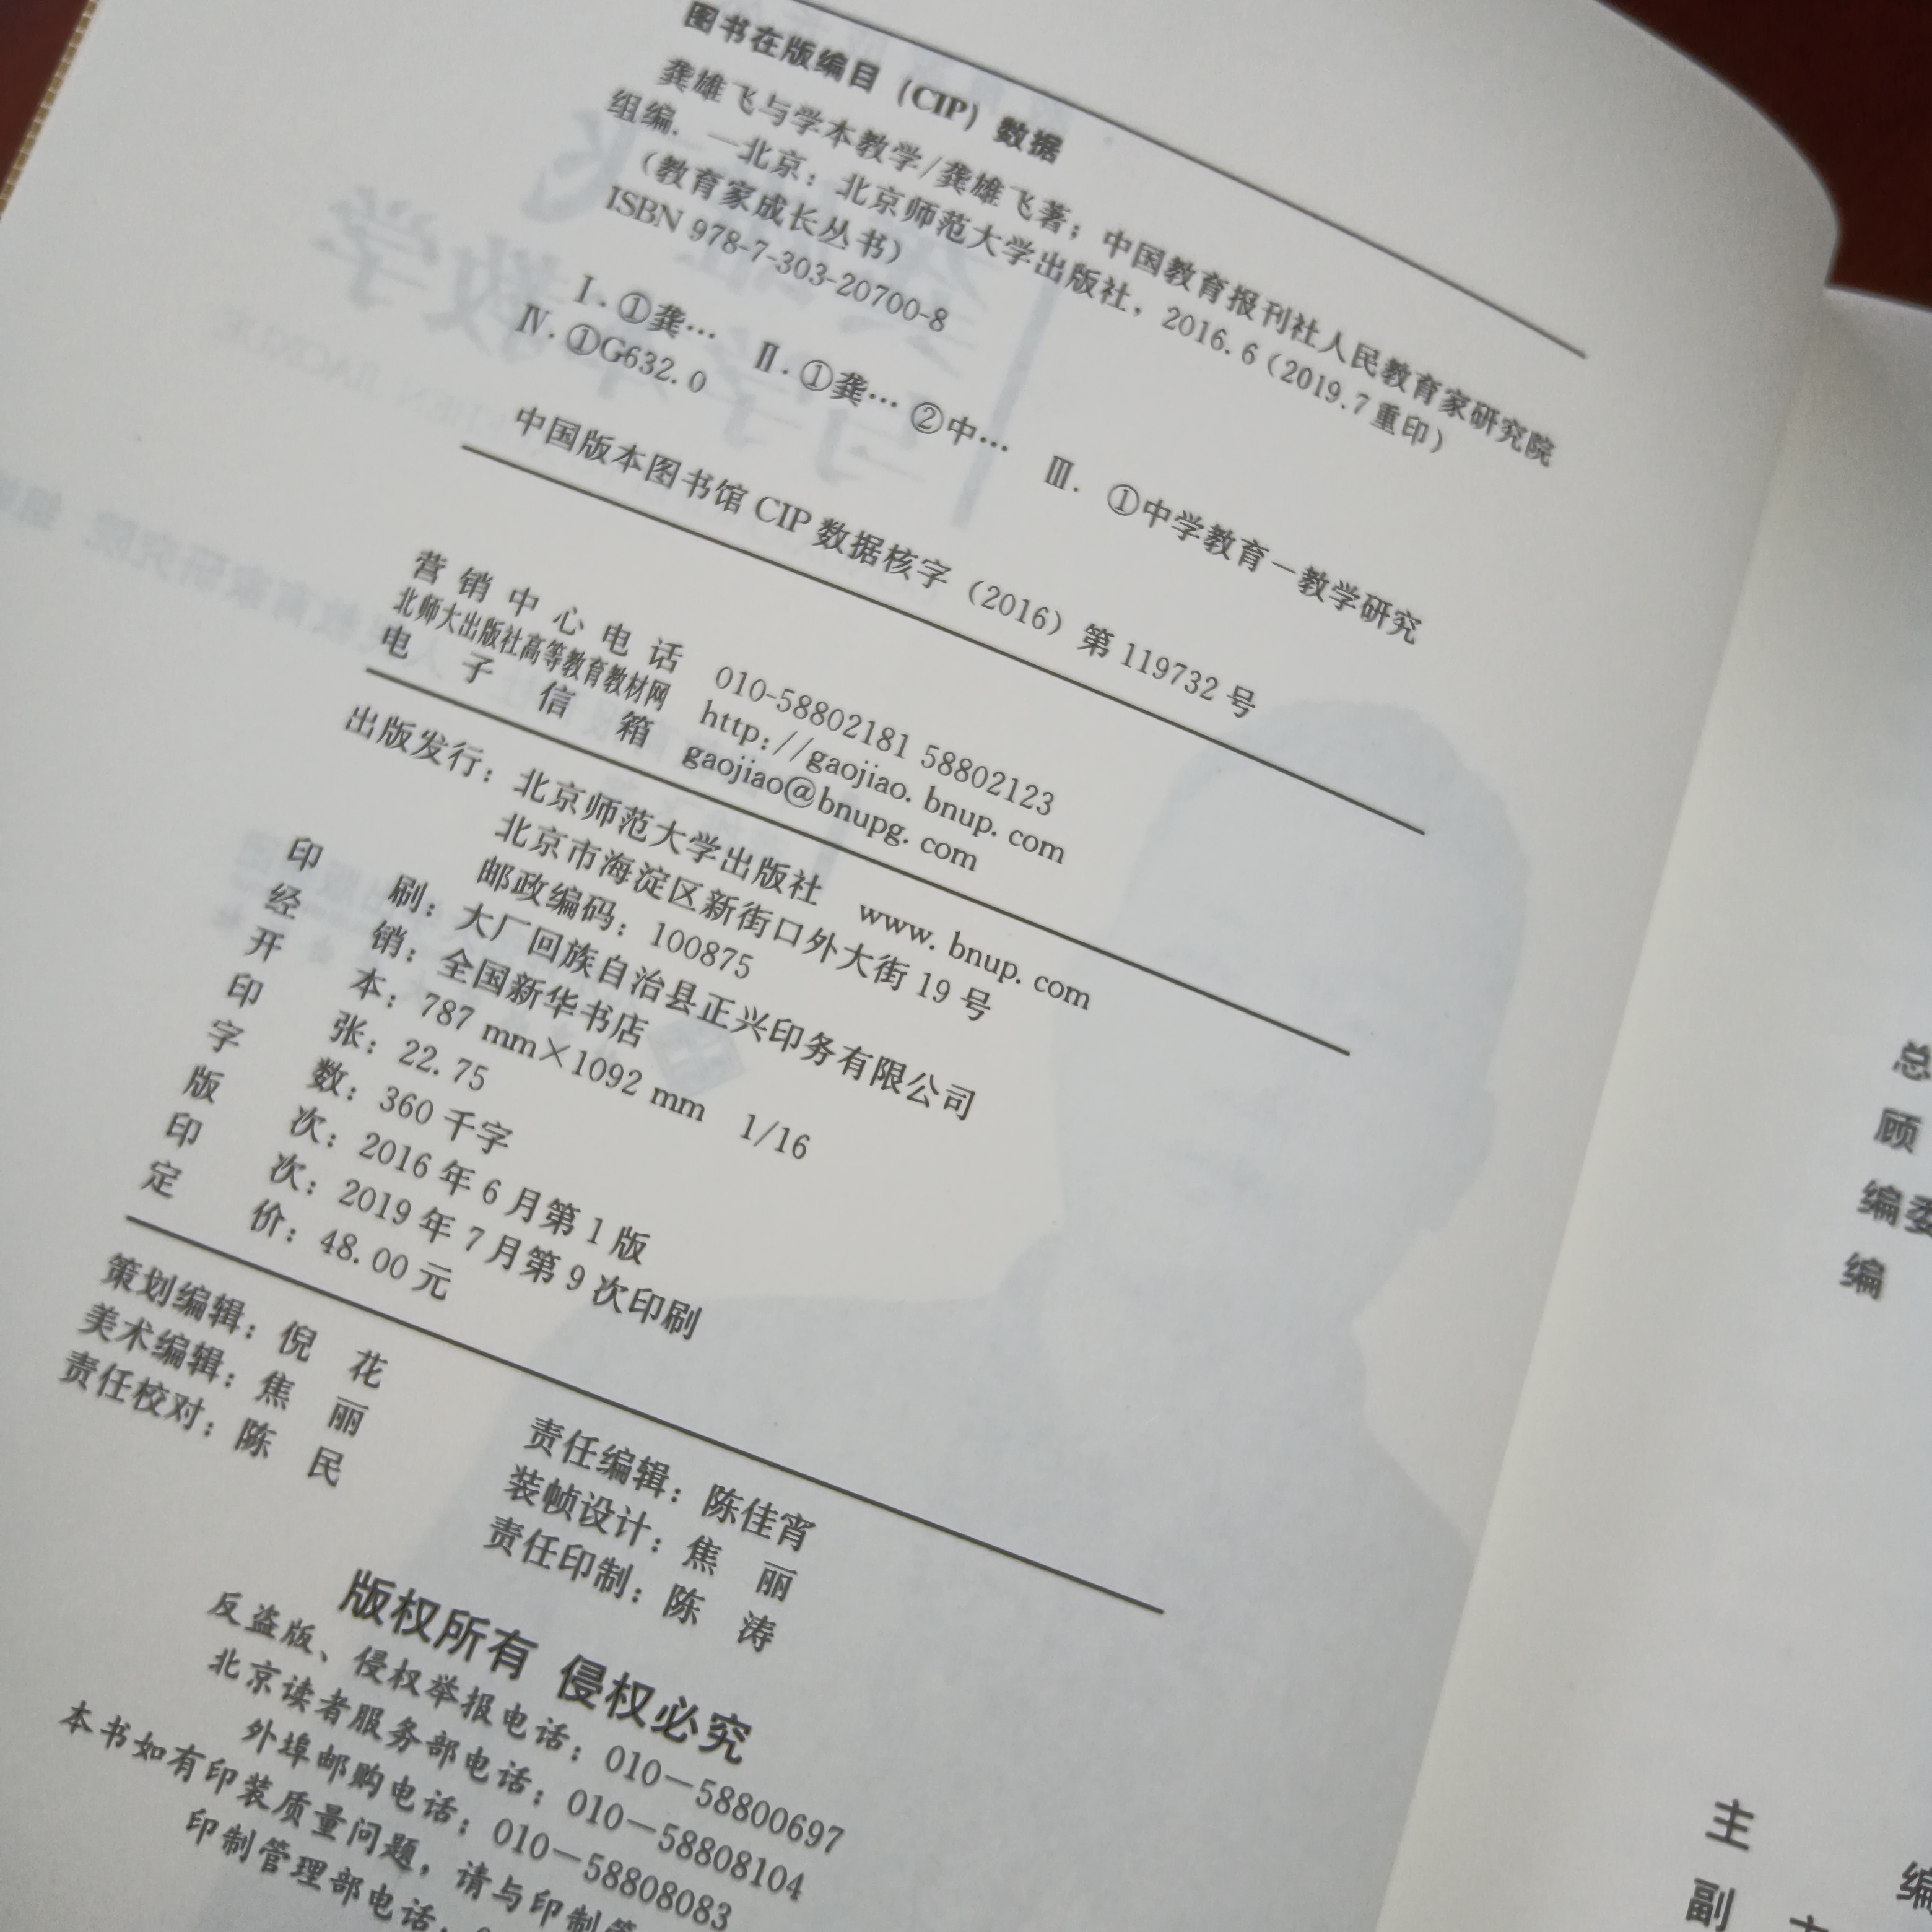 图书在版编目（CIP）数据
龚雄飞与学本教学/龚雄飞著；中国教育报刊社人民教育家研究院
组编．—北京：北京师范大学出版社，2016.6（2019.7重印）
（教育家成长丛书）
ISBN 978-7-303-20700-8
Ⅰ.①龚… Ⅱ.①龚…②中… Ⅲ.①中学教育－教学研究
Ⅳ.①G632.0
中国版本图书馆 CIP 数据核字（2016）第 119732 号
营销中心电话 010-58802181 58802123
北师大出版社高等教育教材网 http://gaojiao.bnup.com
电子信箱 gaojiao@bnupg.com
出版发行：北京师范大学出版社 www.bnup.com
北京市海淀区新街口外大街 19 号
邮政编码：100875
印刷：大厂回族自治县正兴印务有限公司
经销：全国新华书店
开本：787 mm×1092 mm 1/16
印张：22.75
字数：360 千字
版次：2016 年 6 月第 1 版
印次：2019 年 7 月第 9 次印刷
定价：48.00 元
策划编辑：倪 花 责任编辑：陈佳宵
美术编辑：焦 丽 装帧设计：焦 丽
责任校对：陈 民 责任印制：陈 涛
版权所有 侵权必究
反盗版、侵权举报电话：010－58800697
北京读者服务部电话：010－58808104
外埠邮购电话：010－58808083
本书如有印装质量问题，请与印制管
印制管理部电话：
总
顾
编委
编
主编
副主